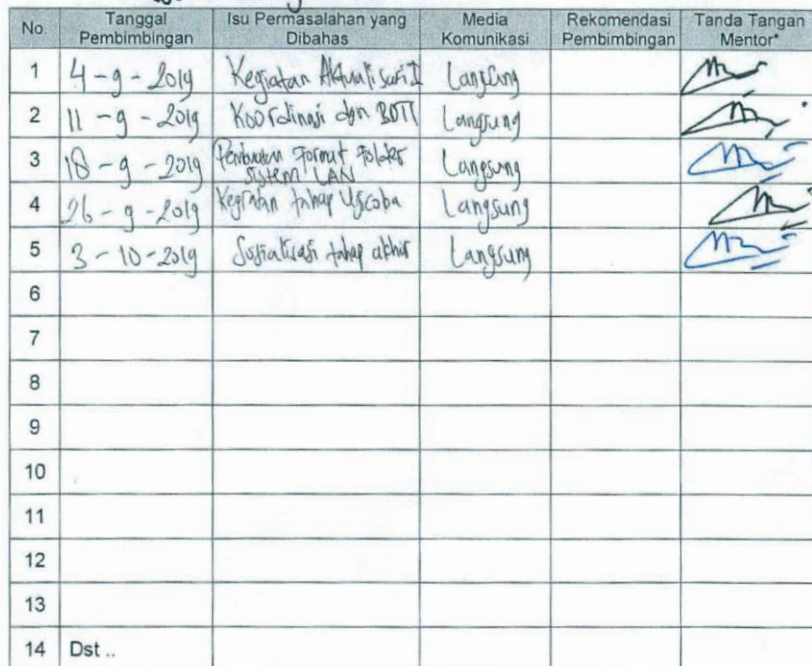 No. Tanggal Pembimbingan Isu Permasalahan yang Dibahas Media Komunikasi Rekomendasi Pembimbingan Tanda Tangan Mentor*
1 4-9-2019 Kegiatan Aktualisasi I Langsung
2 11-9-2019 Koordinasi dgn Langsung
3 18-9-2019 Pembuatan Format Folder sistem LAN Langsung
4 26-9-2019 Kegiatan tahap Ujicoba Langsung
5 3-10-2019 Sosialisasi tahap akhir Langsung
6
7
8
9
10
11
12
13
14 Dst ..